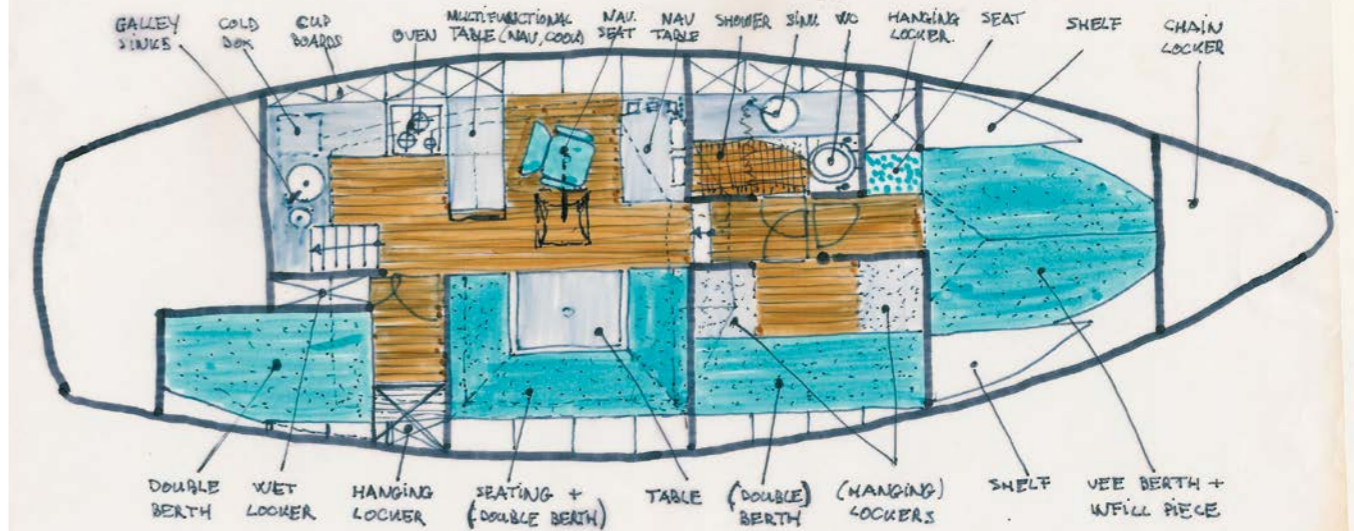 GALLEY
SINKS
COLD
BOX
CUP
BOARDS
OVEN
MULTIFUNCTIONAL
TABLE (NAV, COOK)
NAV.
SEAT
NAV
TABLE
SHOWER
SINK
WC
HANGING
LOCKER.
SEAT
SHELF
CHAIN
LOCKER
DOUBLE
BERTH
WET
LOCKER
HANGING
LOCKER
SEATING +
(DOUBLE BERTH)
TABLE
(DOUBLE)
BERTH
(HANGING)
LOCKERS
SHELF
VEE BERTH +
INFILL PIECE